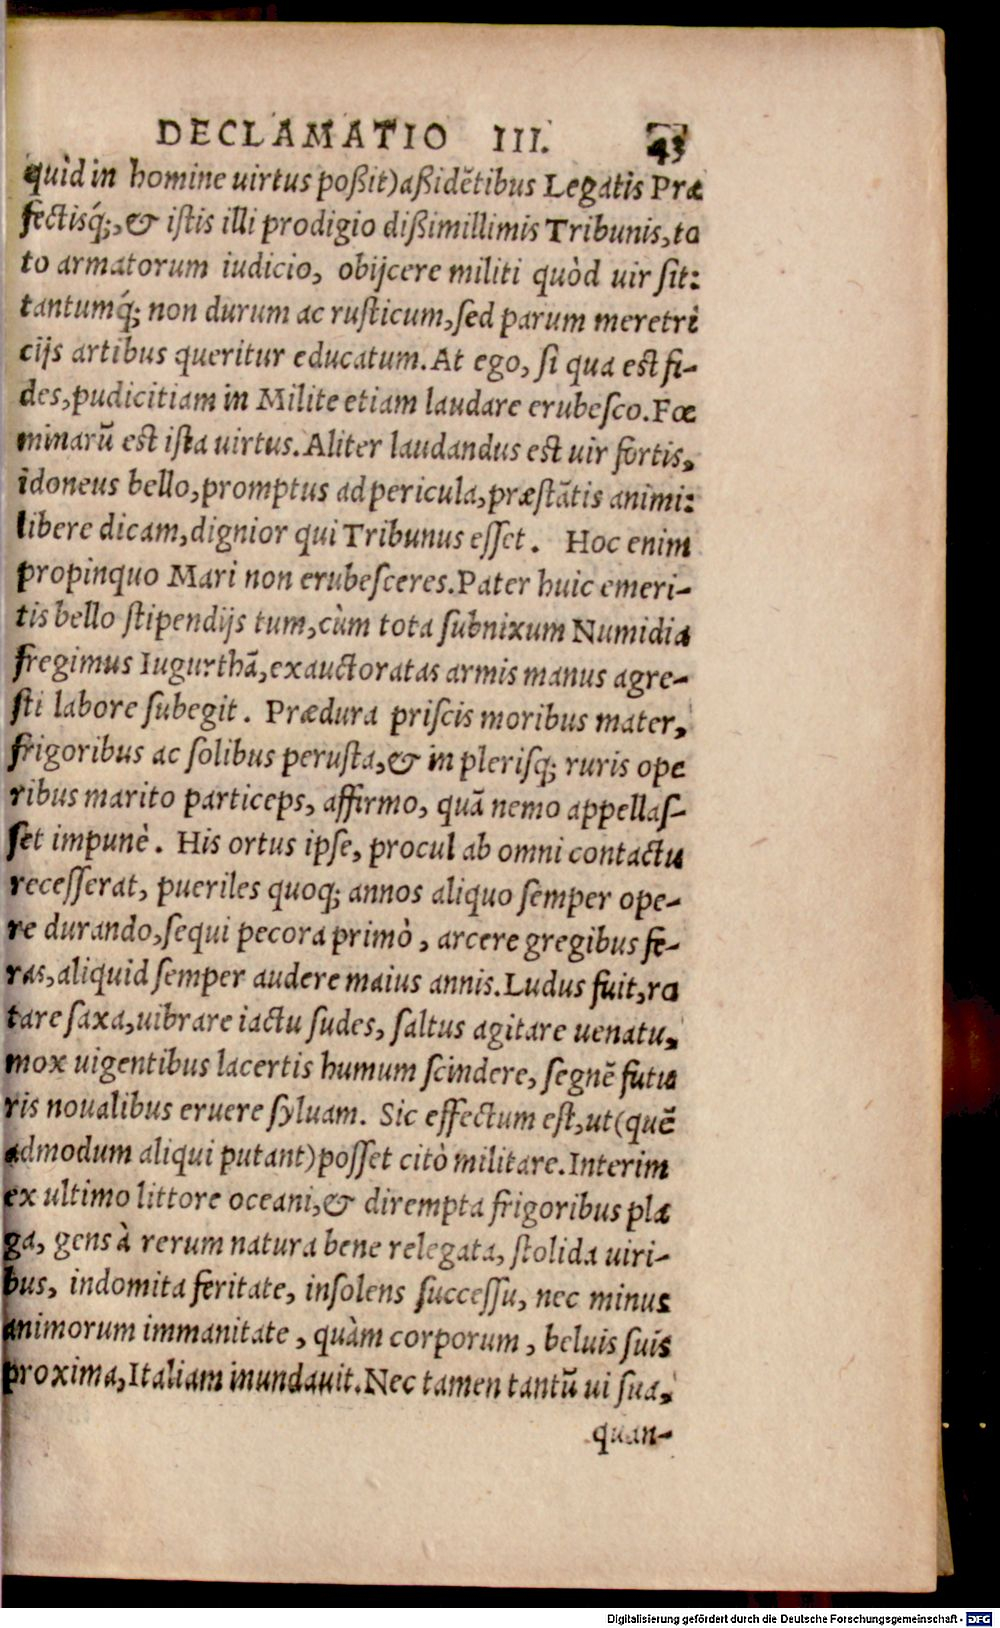 DECLAMATIO III. 43
quid in homine uirtus poßit)aßidẽtibus Legatis Præ
fectisq́;,& iſtis illi prodigio dißimillimis Tribunis,to
to armatorum iudicio, obijcere militi quòd uir ſit:
tantumq́; non durum ac ruſticum,ſed parum meretri
cijs artibus queritur educatum. At ego, ſi qua eſt fi-
des,pudicitiam in Milite etiam laudare erubeſco. Fœ
minarũ eſt iſta uirtus. Aliter laudandus eſt uir fortis,
idoneus bello,promptus ad pericula,præſtãtis animi:
libere dicam,dignior qui Tribunus eſſet. Hoc enim
propinquo Mari non erubeſceres. Pater huic emeri-
tis bello ſtipendijs tum,cùm tota ſubnixum Numidia
fregimus Iugurthã,exauctoratas armis manus agre-
ſti labore ſubegit. Prædura priſcis moribus mater,
frigoribus ac ſolibus peruſta,& in pleriſq; ruris ope
ribus marito particeps, affirmo, quã nemo appellaſ-
ſet impunè. His ortus ipſe, procul ab omni contactu
receſſerat, pueriles quoq; annos aliquo ſemper ope-
re durando,ſequi pecora primò, arcere gregibus fe-
ras,aliquid ſemper audere maius annis. Ludus fuit,ro
tare ſaxa,uibrare iactu ſudes, ſaltus agitare uenatu,
mox uigentibus lacertis humum ſcindere, ſegnẽ futu
ris noualibus eruere ſyluam. Sic effectum eſt,ut(quẽ
admodum aliqui putant)poſſet citò militare. Interim
ex ultimo littore oceani,& dirempta frigoribus pla
ga, gens à rerum natura bene relegata, ſtolida uiri-
bus, indomita feritate, inſolens ſucceſſu, nec minus
animorum immanitate, quàm corporum, beluis ſuis
proxima,Italiam inundauit. Nec tamen tantũ ui ſua,
quan-
Digitalisierung gefördert durch die Deutsche Forschungsgemeinschaft - DFG